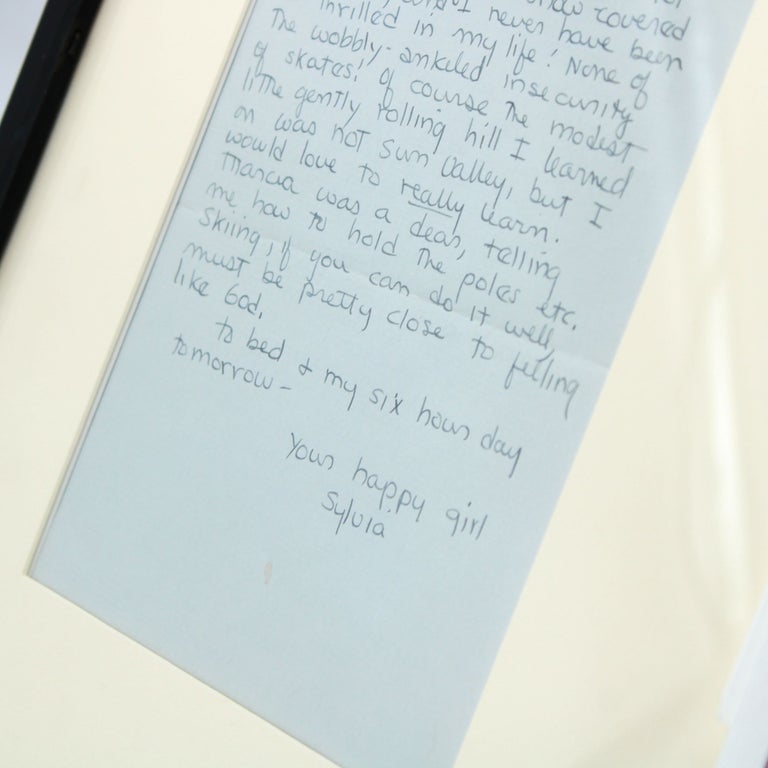 covered
I never have been
thrilled in my life! None of
The wobbly-ankled insecurity
of skates! Of course The modest
little gently rolling hill I learned
on was not Sun Valley, but I
would love to really learn.
Marcia was a dear, telling
me how to hold The poles etc.
Skiing, if you can do it well,
must be pretty close to feeling
like God.
to bed & my six hour day
tomorrow -
Your happy girl
Sylvia